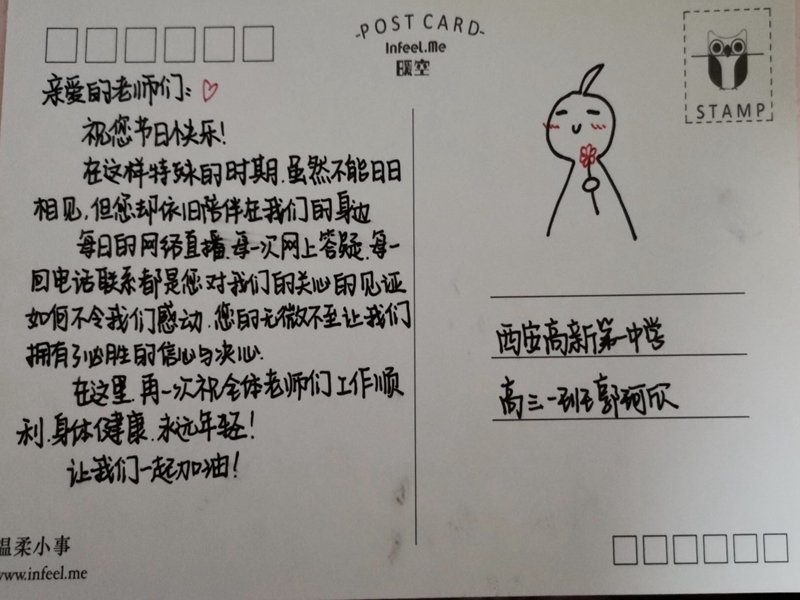 POST CARD
Infeel.Me
暖空
STAMP
亲爱的老师们：
祝您节日快乐！
在这样特殊的时期，虽然不能日日
相见，但您却依旧陪伴在我们的身边
每日的网络直播，每一次网上答疑，每一
回电话联系都是您对我们的关心的见证
如何不令我们感动，您的无微不至让我们
拥有了必胜的信心与决心.
在这里，再一次祝全体老师们工作顺
利，身体健康，永远年轻！
让我们一起加油！
西安高新第一中学
高三一班郭珂欣
温柔小事
www.infeel.me